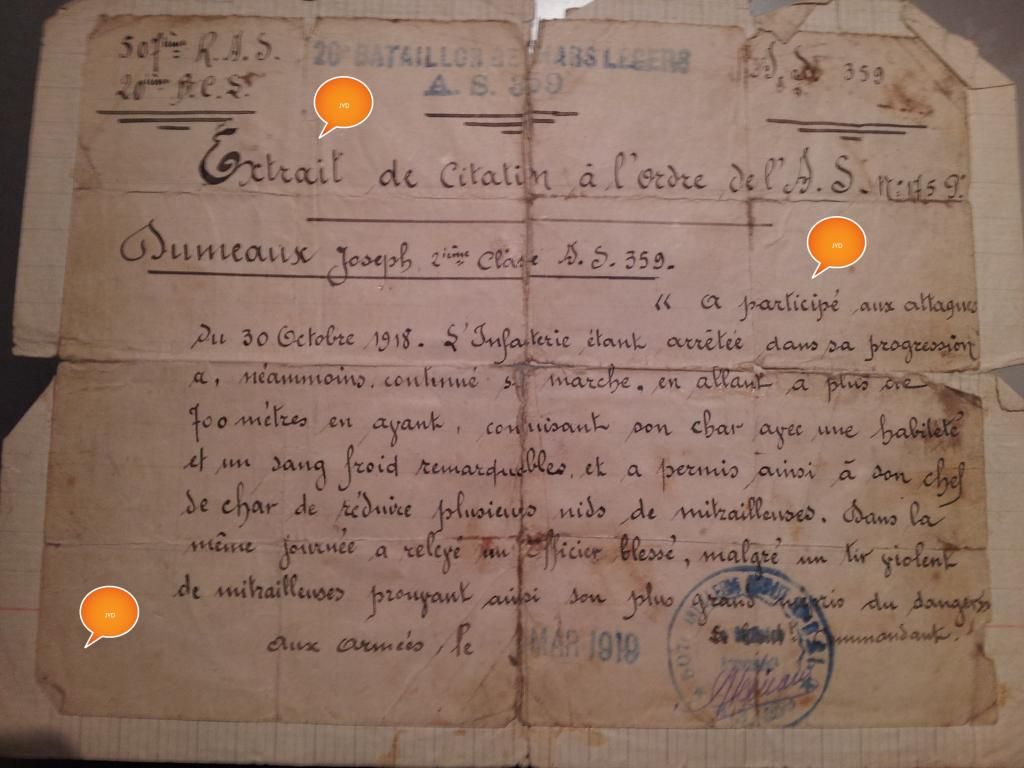 507ième R.A.S. 20e BATAILLON DE CHARS LEGERS A.S. 359
20ième A.S. 359
JYD
Extrait de Citation à l'ordre de l'A.S. n°: 175 9.
JYD
Dumeaux Joseph 2ième Classe A.S. 359.
" a participé aux attaques
du 30 Octobre 1918. L'Infanterie étant arrêtée dans sa progression
a, néammoins, continué sa marche, en allant à plus de
700 mètres en avant, conduisant son char avec une habileté
et un sang froid remarquables, et a permis ainsi à son chef
de char de réduire plusieurs nids de mitrailleuses. Dans la
même journée a relevé un Officier blessé, malgré un tir violent
de mitrailleuses prouvant ainsi son plus grand mépris du danger»
JYD
aux armées, le MAR 1919 Commandant.